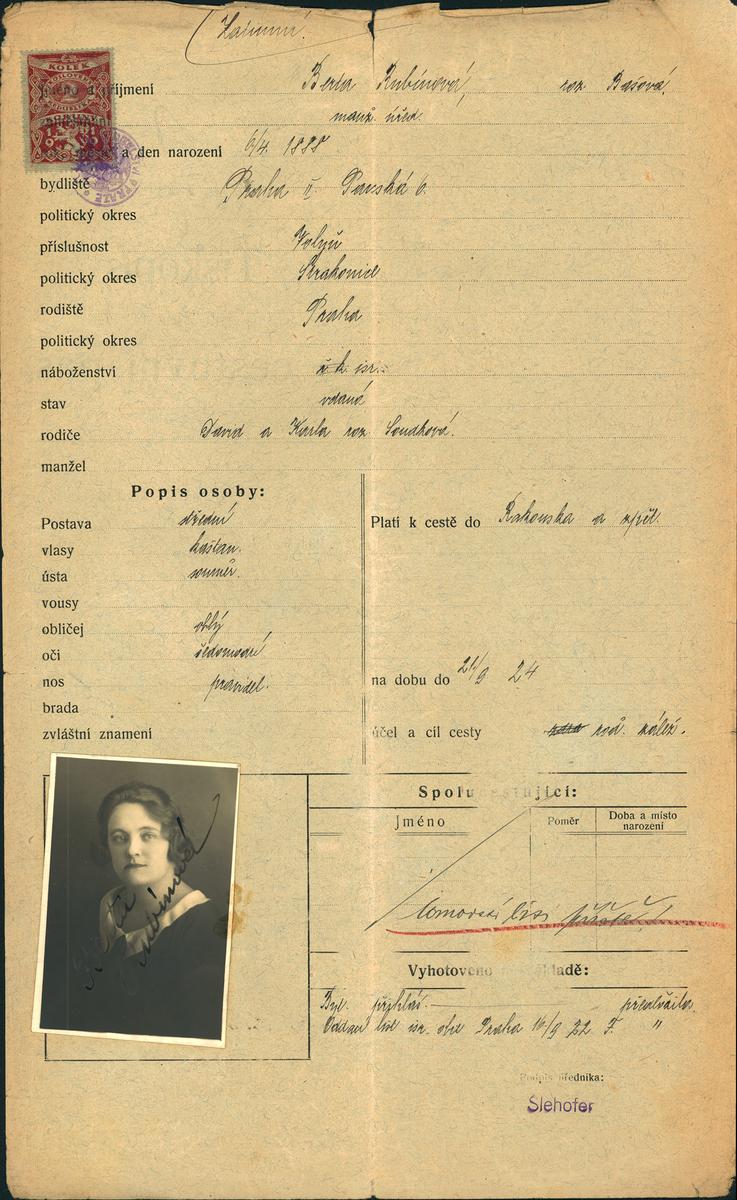 KOLEK
Jméno a příjmení Berta Rubínová, roz Bašová.
manž. úřed.
a den narození 6/4. 1888
bydliště Praha II Panská 6.
politický okres
příslušnost Volyň
politický okres Strakonice
rodiště Praha
politický okres
náboženství isr.
stav vdaná
rodiče David a Karla roz Soudková.
manžel
Popis osoby:
Postava střední
vlasy kaštan.
ústa souměr.
vousy
obličej oblý
oči šedomodré
nos pravidel.
brada
zvláštní znamení
Platí k cestě do Rakouska a zpět.
na dobu do 21/9 24
účel a cíl cesty rod. zálež.
Spolucestující:
Jméno Poměr Doba a místo narození
Vyhotoveno
Byt. přihláš. předložila
Oddací list isr. obce Praha 16/9 22 F. "
Berta Rubínová
Podpis úředníka:
Slehofer